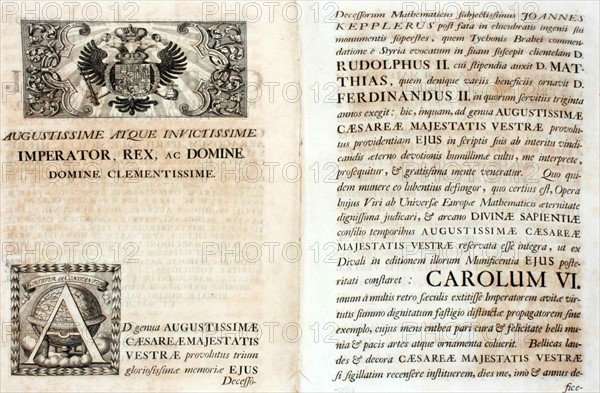 AUGUSTISSIME ATQUE INVICTISSIME
IMPERATOR, REX, AC DOMINE
DOMINE CLEMENTISSIME.
A
D genua AUGUSTISSIMÆ
CÆSAREÆ MAJESTATIS
VESTRÆ provolutus trium
gloriosissimæ memoriæ EJUS
Decesso-
Decessorum Mathematicus subjectissimus JOANNES
KEPPLERUS post fata in elucubratis ingenii sui
monumentis superstes, quem Tychonis Brahei commen-
datione è Styria evocatum in suam suscepit clientelam D.
RUDOLPHUS II. cui stipendia auxit D. MAT-
THIAS, quem denique variis beneficiis ornavit D.
FERDINANDUS II, in quorum servitiis triginta
annos exegit: hic, inquam, ad genua AUGUSTISSIMÆ
CÆSAREÆ MAJESTATIS VESTRÆ provolu-
tus providentiam EJUS in scriptis suis ab interitu vindi-
candis æterno devotionis humillimæ cultu, me interprete,
prosequitur, & gratissima mente veneratur. Quo qui-
dem munere eo lubentius defungor, quo certius est, Opera
hujus Viri ab Universæ Europæ Mathematicis æternitate
dignissima judicari, & arcano DIVINÆ SAPIENTIÆ
consilio temporibus AUGUSTISSIMÆ CÆSAREÆ
MAJESTATIS VESTRÆ reservata esse integra, ut ex
Divali in editionem illorum Munificentia EJUS poste-
ritati constaret: CAROLUM VI.
unum à multis retro sæculis extitisse Imperatorem avitæ vir-
tutis summo dignitatum fastigio distinctæ propagatorem sine
exemplo, cujus mens enthea pari cura & felicitate belli mu-
nia & pacis artes atque ornamenta coluerit. Bellicas lau-
des & decora CÆSAREÆ MAJESTATIS VESTRÆ
si sigillatim recensere instituerem, dies me, imo & annus de-
fice-